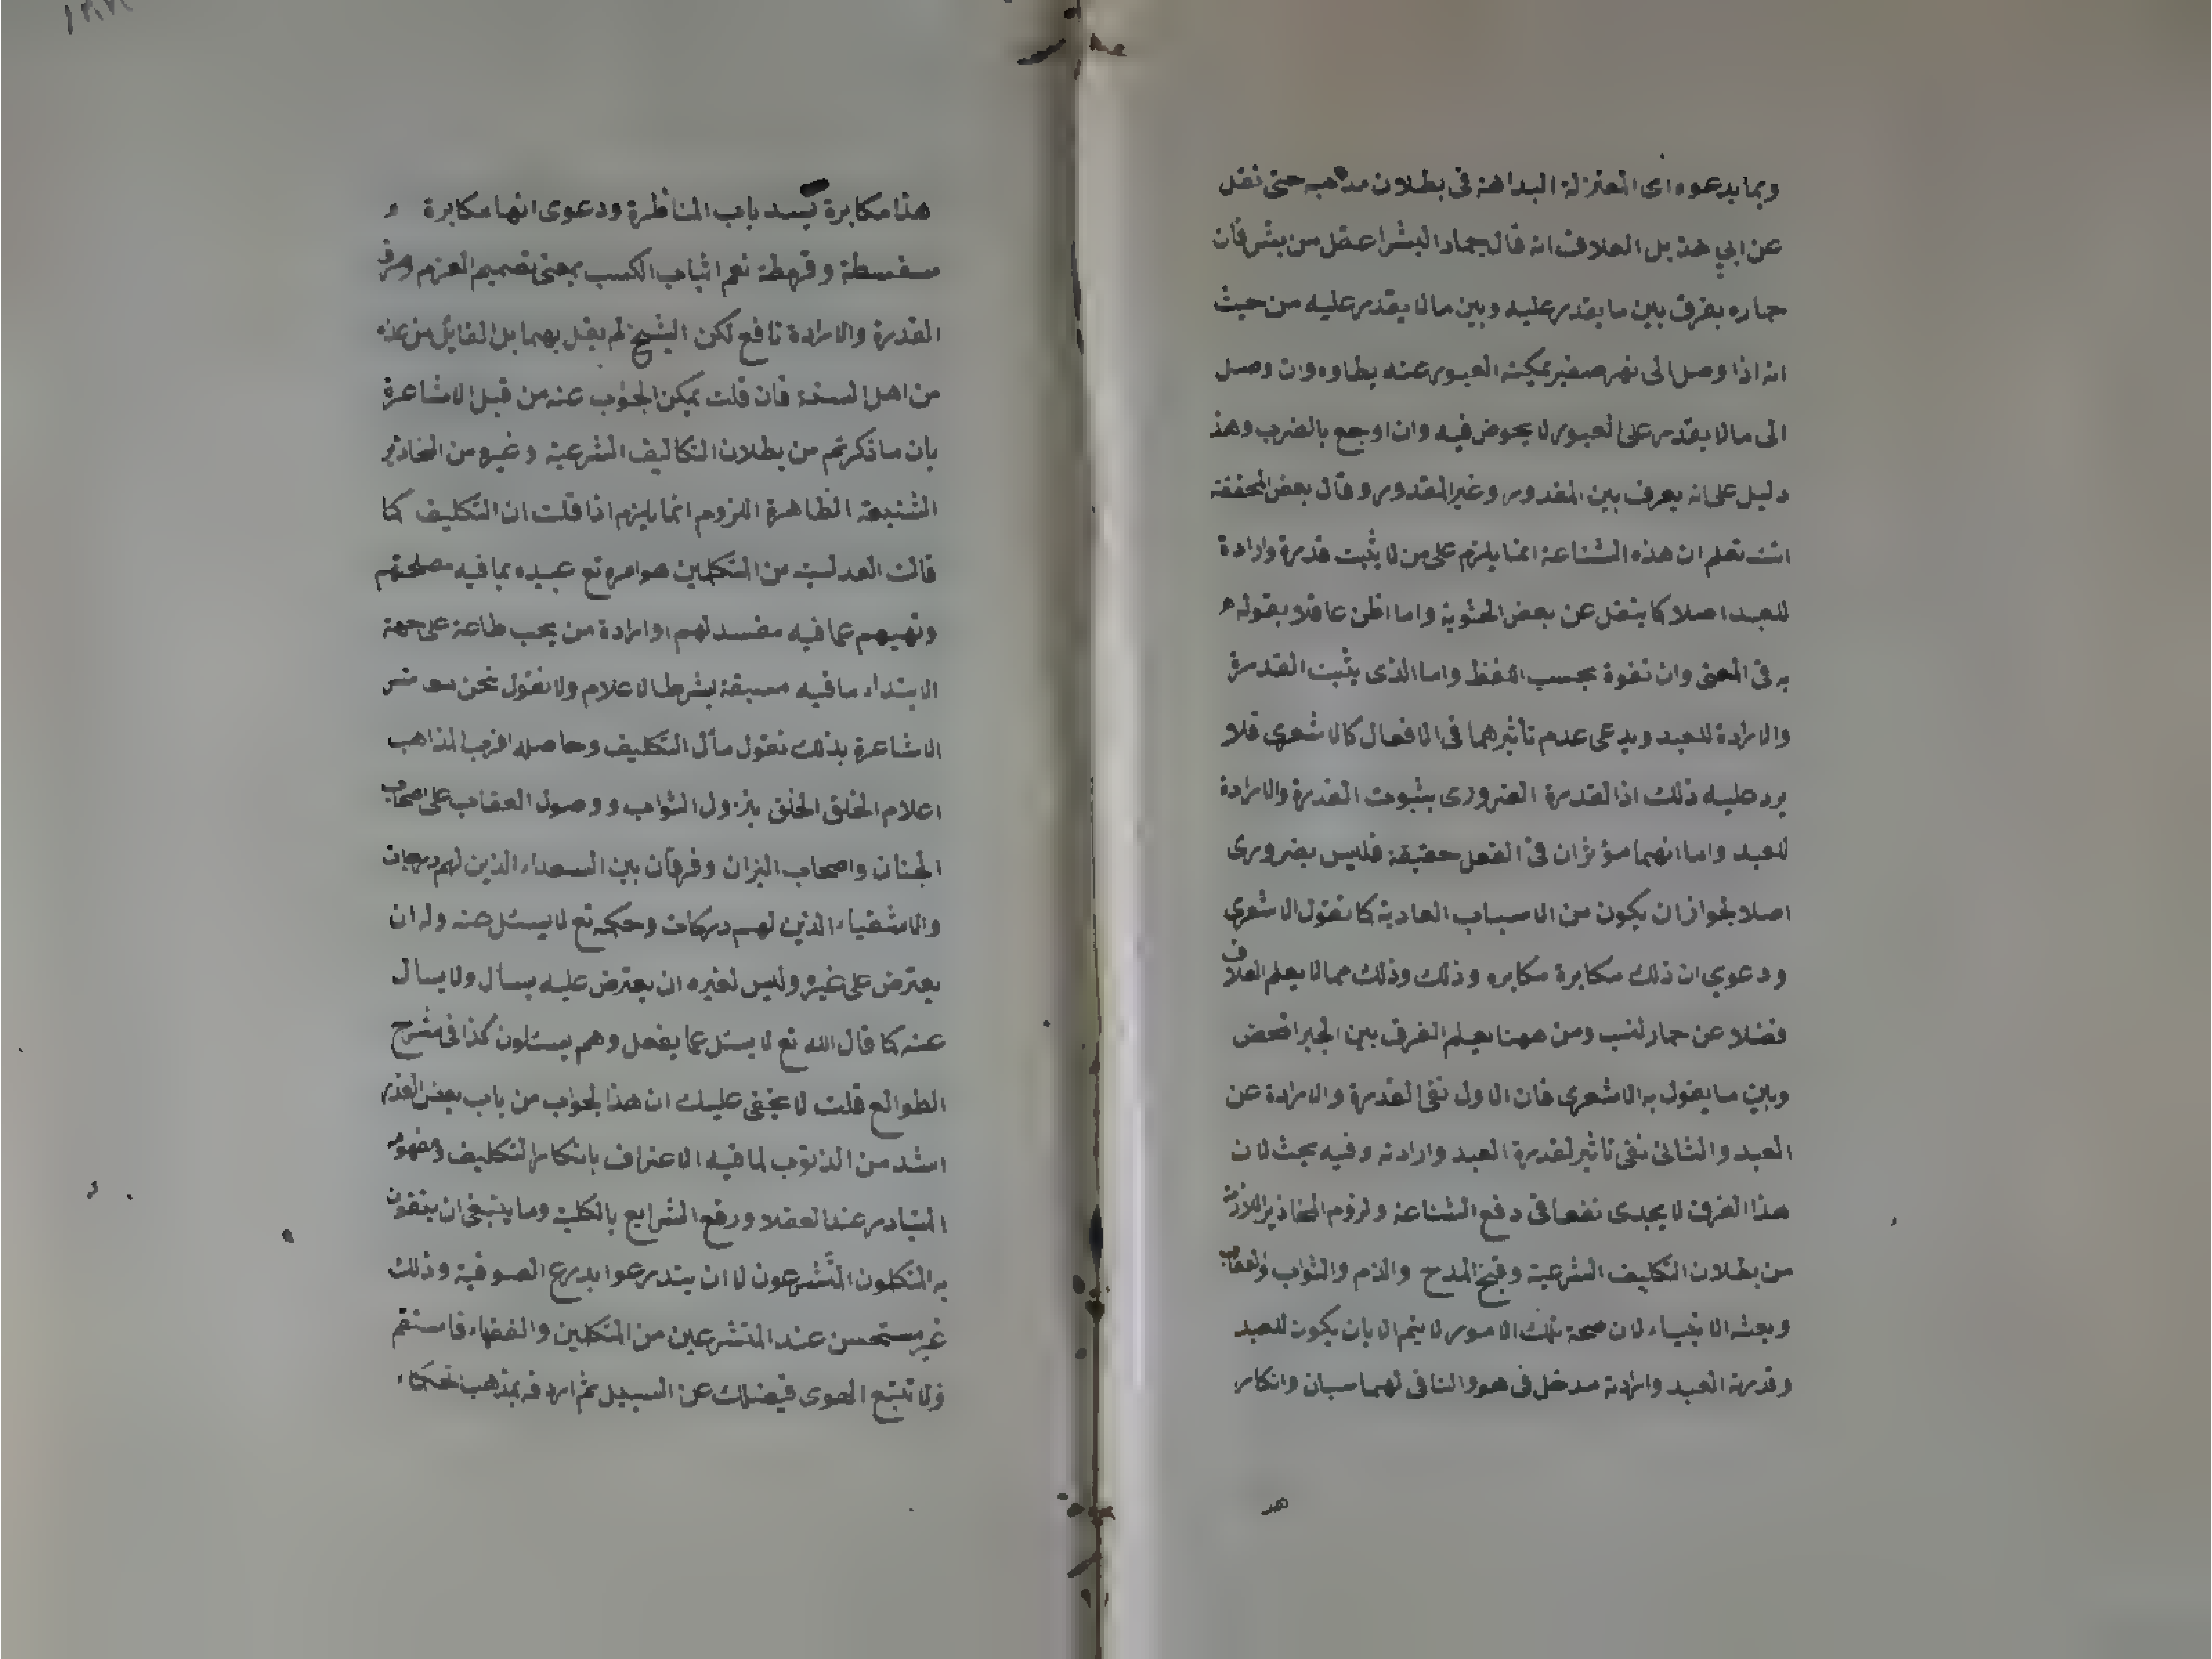 وبما يدعوه اى المعتزلة البداهة فى بطلان مذهبه حتى نقل
عن ابي هذيل العلاف انه قال حمار البشر اعقل من بشر فان
حماره يفرق بين ما يقدر عليه وبين مالا يقدر عليه من حيث
انه اذا وصل الى نهر صغير يمكنه العبور عنه يطاوه وان وصل
الى مالا يقدر على العبور لا يخوض فيه وان اوجع بالضرب وهذ
دليل على انه يعرف بين المقدور وغير المقدور وقال بعض المحققة
انت تعلم ان هذه الشناعة انما يلزم على من لا يثبت قدرة وارادة
للعبد اصلا كما ينقل عن بعض الحشوية واما اظن عاقلا يقوله
به فى المعنى وان تفوه بحسب اللفظ واما الذى يثبت القدرة
والارادة للعبد ويدعى عدم تأثيرهما فى الافعال كالاشعرى فلا
يرد عليه ذلك اذ القدرة الضرورى بثبوت القدرة والارادة
للعبد واما انهما مؤثران فى الفعل حقيقة فليس بضرورى
اصلا لجواز ان يكون من الاسباب العادية كما تقول الاشعرى
ودعوي ان ذلك مكابرة مكابره وذلك وذلك مما لا يعلم العلاف
فضلا عن حمار لنب ومن ههنا يعلم الفرق بين الجبر المحض
وبين ما يقول به الاشعرى فان الاول نفى القدرة والارادة عن
العبد والثانى نفى تاثير لقدرة العبد وارادته وفيه بحث لان
هذا الفرق لا يجدى نفعا فى دفع الشناعة ولزوم المحاذير اللازمة
من بطلان التكليف الشرعية وقبح المدح والذم والثواب والعقاب
وبعثه الانبياء لان صحة تلك الامور لا يتم الا بان يكون للعبد
وقدرة العبد وارادته مدخل فى هو والنافى لهما سيان وانكار
هذا مكابرة يسد باب المناظرة ودعوى انها مكابرة و
سفسطة وقرمطة نعم اثبات الكسب بمعنى تصميم العزم وصرف
القدرة والارادة نافع لكن الشيخ لم يقل بهما بل القائل من عنه
من اهل السنة فان قلت يمكن الجواب عنه من قبل الاشاعرة
بان ما ذكرتم من بطلان التكاليف الشرعية وغيره من المحاذير
الشنيعة الظاهرة اللزوم انما يلزم اذا قلت ان التكليف كما
قالت العدلية من المتكلمين هو امره تع عبيده بما فيه مصلحتهم
ونهيهم عما فيه مفسد لهم او ارادة من يجب طاعة على جهة
الابتداء ما فيه مسبقة بشرط الاعلام ولا نقول نحن
الاشاعرة بذلك نقول مأل التكليف وحاصله اقرب المذاهب
اعلام الخلق الخلق بنزول الثواب ووصول العقاب على اصحاب
الجنان واصحاب النيران وفرقان بين السعداء الذين لهم درجات
والاشقياء الذين لهم دركات وحكمه تع لا يسئل عنه وله ان
يعترض على غيره وليس لغيره ان يعترض عليه يسأل ولا يسال
عنه كما قال الله تع لا يسئل عما يفعل وهم يسئلون كذا فى شرح
الطوالع قلت لا يخفى عليك ان هذا لجواب من باب بعض العذر
اشد من الذنوب لما فيه الاعتراف بانكار التكليف ومفهومه
المتبادر عند العقلا ورفع الشرايع بالكلية وما ينبغى ان يتفوه
به المتكلمون المتشرعون لا ان يتدرعوا بدرع الصوفية وذلك
غير مستحسن عند المتشرعين من المتكلمين والفقهاء فاستقم
ولا تتبع الهوى فيضلك عن السبيل ثم اردفه بمذهب الحكماء